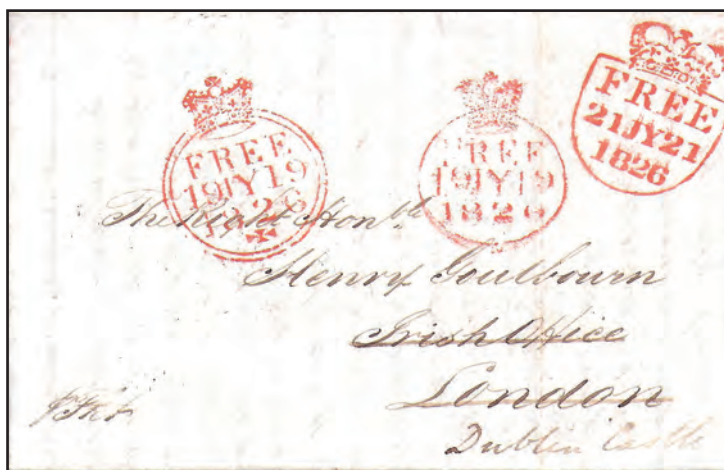 FREE
19JY19
1826
FREE
19JY19
1826
FREE
21JY21
1826
The Right Honble
Henry Goulbourn
Irish Office
London
Dublin Castle